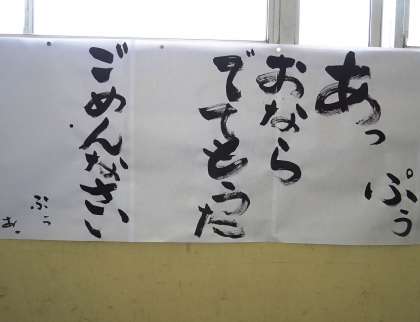 あっ
ぷぅ
おなら
でてもうた
ごめんなさい
ぷぅ
あっ